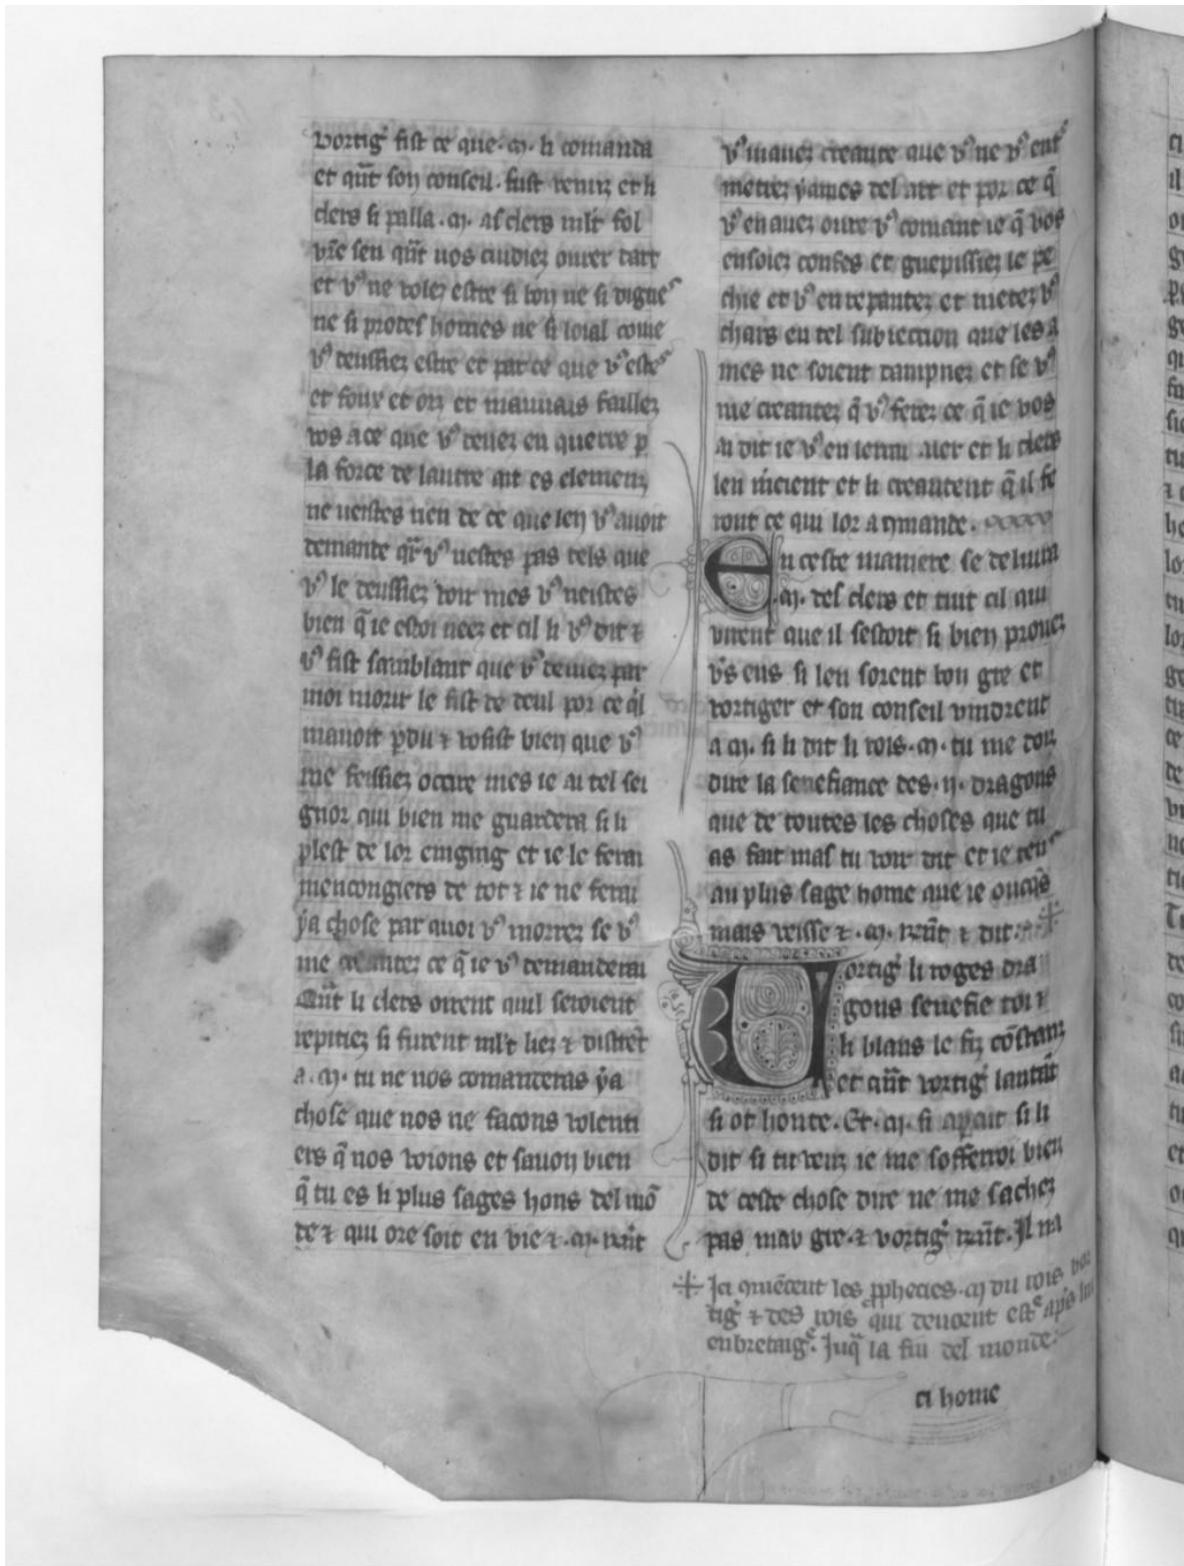 vortigͥ fist ce que .m. li comanda
et qͣnt son conseil fust venuz et li
clers si palla .m. as clers mlt fol
vr̄e sen qͣnt uos cuidiez ouer dart
et vꝰ ne volez estre si bon ne si digne
ne si prodes homes ne si loial come
vꝰ deussiez estre et par ce que vꝰ estes
et foux et orz et mauuais faillez
vos a ce que vꝰ tenez en querre p̱
la force de lautre art es elemenz
ne ueistes rien de ce que len vꝰ auoit
demande qͣr vꝰ nestes pas tels que
vꝰ le deussiez voir mes vꝰ veistes
bien q̄ ie estoi nez et cil li vꝰ dit ⁊
vꝰ fist samblant que vꝰ deuiez par
moi morir le fist de deul por ce qͥl
mauoit p̱du ⁊ vosist bien que vꝰ
me feissiez occire mes ie ai tel sei
gnor qui bien me guardera si li
plest de lor enging et ie le ferai
mencongiers de tot ⁊ ie ne ferai
ya chose par quoi vꝰ morrez se vꝰ
me creantez ce q̄ ie vꝰ demanderai
Qͣnt li clers oirent quil seroient
repitiez si furent mlt liez ⁊ distrēt
a .m. tu ne nos comanderas ya
chose que nos ne facons volenti
ers q̄ nos voions et sauon bien
q̄ tu es li plus sages hons del mō
de ⁊ qui ore soit en vie ⁊ .m. rn̄t
vꝰ mauez creante que vꝰ ne vꝰ ent
metrez yames del art et por ce q̄
vꝰ en auez oure vꝰ comant ie q̄ vos
ensoiez confes et guepissiez le pe
chie et vꝰ en repantez et metez vꝰ
chars en tel subiection que les a
mes ne soient dampnez et se vꝰ
me creantez q̄ vꝰ ferez ce q̄ ie vos
ai dit ie vꝰ en lerrai aler et li clers
len mcient et li creantent q̄ il fe
ront ce qui lor a cͦmande.
En ceste maniere se deliura
.m. des clers et tuit cil qui
virent que il sestoit si bien prouez
v̓s eus si len sorent bon gre et
vortiger et son conseil vindrent
a .m. si li dit li rois .m. tu me doiz
dire la senefiance des .ij. dragons
que de toutes les choses que tu
as fait mas tu voir dit et ie ten
au plus sage home que ie oncqͣs
mais veisse ⁊ .m. rn̄t ⁊ dit.
Vortigͥ li roges dra
gons senefie toi ⁊
li blans le fiz cōstanz
et qͣnt vortigͥ lantāt
si ot honte. Et .m. si apͣut si li
dit si tu veuz ie me sofferroi bien
de ceste chose dire ne me sachez
pas mau gre ⁊ vortigͥ rn̄t. Il na
Ici cͦmēcent les ꝓphecies .m du rois vor
tigͥ ⁊ des rois qui deuorent estͤ apͤs lui
enbretaigͤ. Juqͣ la fin del monde.
ci home